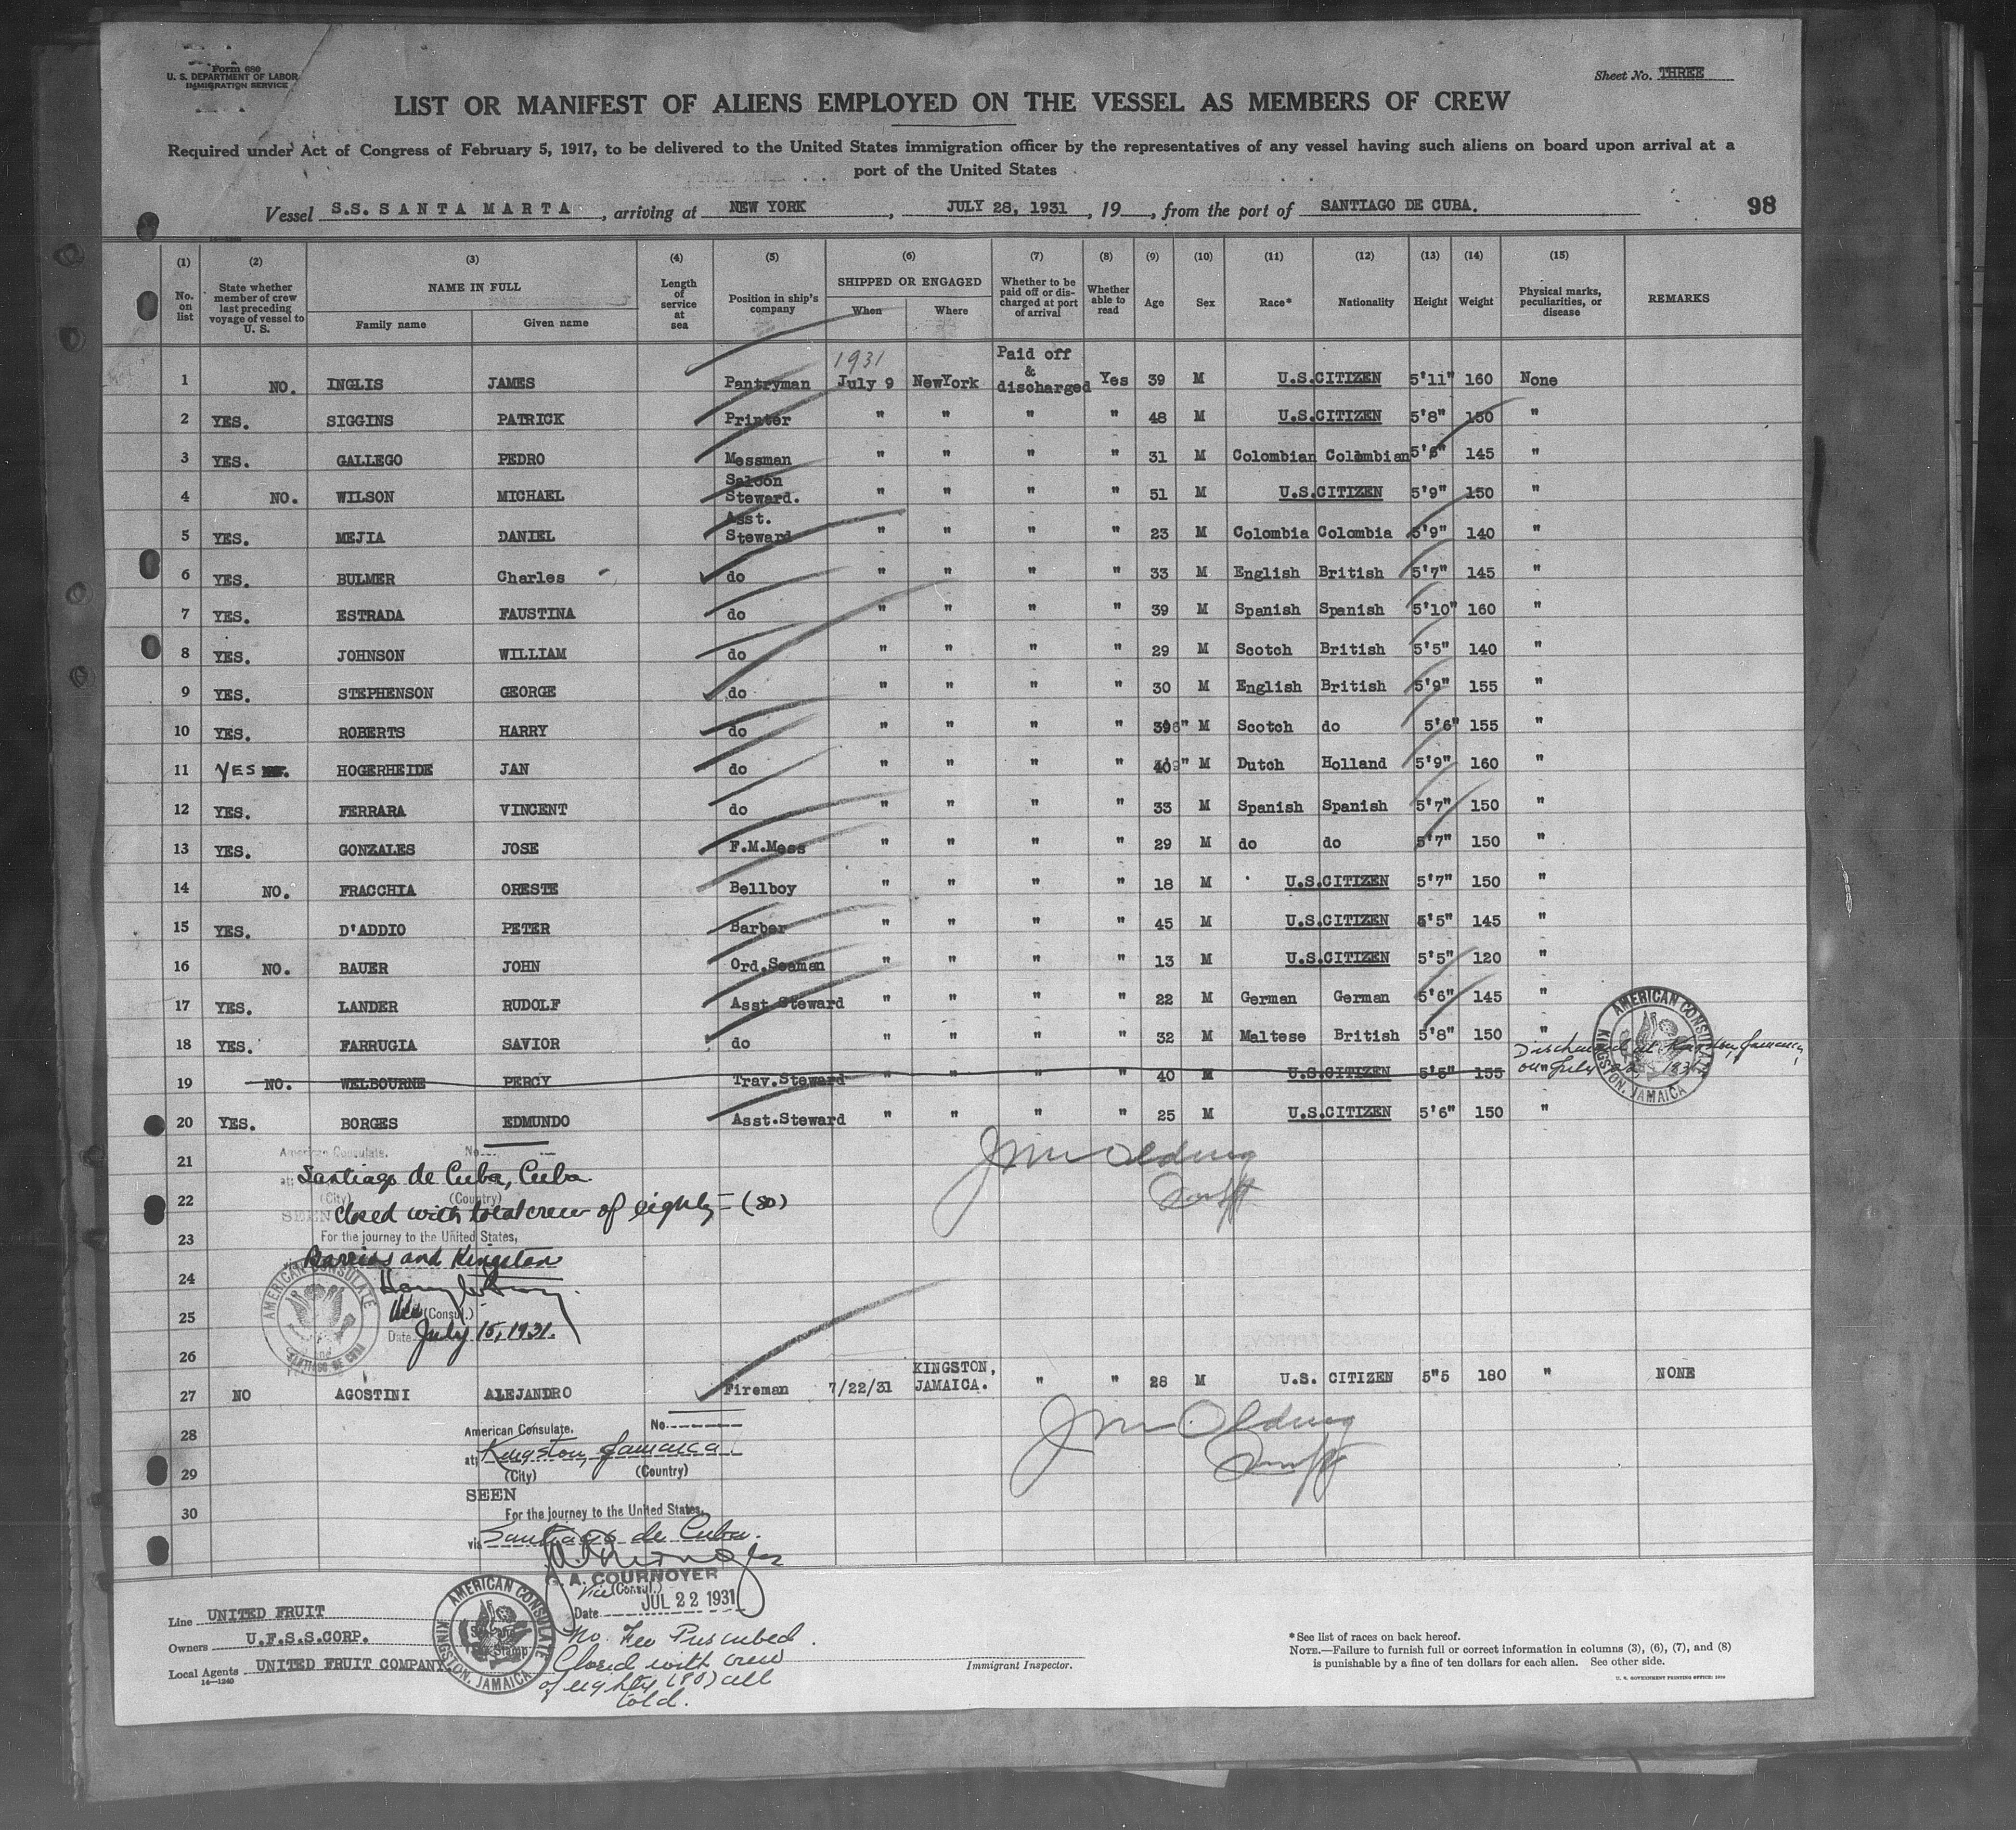 Form 680
U. S. DEPARTMENT OF LABOR
IMMIGRATION SERVICE
Sheet No. THREE
LIST OR MANIFEST OF ALIENS EMPLOYED ON THE VESSEL AS MEMBERS OF CREW
Required under Act of Congress of February 5, 1917, to be delivered to the United States immigration officer by the representatives of any vessel having such aliens on board upon arrival at a
port of the United States
Vessel S.S. SANTA MARTA, arriving at NEW YORK, JULY 28, 1931, 19, from the port of SANTIAGO DE CUBA. 98
(1) (2) (3) (4) (5) (6) (7) (8) (9) (10) (11) (12) (13) (14) (15)
No. on list State whether member of crew last preceding voyage of vessel to U. S. NAME IN FULL Family name Given name Length of service at sea Position in ship's company SHIPPED OR ENGAGED When Where Whether to be paid off or discharged at port of arrival Whether able to read Age Sex Race* Nationality Height Weight Physical marks, peculiarities, or disease REMARKS
1 NO. INGLIS JAMES Pantryman 1931 July 9 NewYork Paid off & discharged Yes 39 M U.S.CITIZEN 5'11" 160 None
2 YES. SIGGINS PATRICK Printer " " " " 48 M U.S.CITIZEN 5'8" 150 "
3 YES. GALLEGO PEDRO Messman " " " " 31 M Colombian Colombian 5'6" 145 "
4 NO. WILSON MICHAEL Saloon Steward. " " " " 51 M U.S.CITIZEN 5'9" 150 "
5 YES. MEJIA DANIEL Asst. Steward " " " " 23 M Colombia Colombia 5'9" 140 "
6 YES. BULMER Charles do " " " " 33 M English British 5'7" 145 "
7 YES. ESTRADA FAUSTINA do " " " " 39 M Spanish Spanish 5'10" 160 "
8 YES. JOHNSON WILLIAM do " " " " 29 M Scotch British 5'5" 140 "
9 YES. STEPHENSON GEORGE do " " " " 30 M English British 5'9" 155 "
10 YES. ROBERTS HARRY do " " " " 39 M Scotch do 5'6" 155 "
11 YES HOGERHEIDE JAN do " " " " 40 M Dutch Holland 5'9" 160 "
12 YES. FERRARA VINCENT do " " " " 33 M Spanish Spanish 5'7" 150 "
13 YES. GONZALES JOSE F.M.Mess " " " " 29 M do do 5'7" 150 "
14 NO. FRACCHIA ORESTE Bellboy " " " " 18 M U.S.CITIZEN 5'7" 150 "
15 YES. D'ADDIO PETER Barber " " " " 45 M U.S.CITIZEN 5'5" 145 "
16 NO. BAUER JOHN Ord.Seaman " " " " 13 M U.S.CITIZEN 5'5" 120 "
17 YES. LANDER RUDOLF Asst.Steward " " " " 22 M German German 5'6" 145 "
18 YES. FARRUGIA SAVIOR do " " " " 32 M Maltese British 5'8" 150 "
19 NO. WELBOURNE PERCY Trav.Steward " " " " 40 M U.S.CITIZEN 5'5" 155 Discharged at Kingston, Jamaica, on July
AMERICAN CONSULATE KINGSTON, JAMAICA
20 YES. BORGES EDMUNDO Asst.Steward " " " " 25 M U.S.CITIZEN 5'6" 150 "
American Consulate. No.
21
at: Santiago de Cuba, Cuba.
(City) (Country)
22
SEEN Closed with total crew of eighty - (80)
23
For the journey to the United States,
via Barrios and Kingston
24
AMERICAN CONSULATE SANTIAGO DE CUBA
25
(Consul.)
Date July 15, 1931.
26
27 NO AGOSTINI ALEJANDRO Fireman 7/22/31 KINGSTON, JAMAICA. " " 28 M U.S. CITIZEN 5"5 180 " NONE
28
American Consulate. No
at: Kingston, Jamaica
29
(City) (Country)
SEEN
30
For the journey to the United States,
via Santiago de Cuba.
A. COURNOYER
Vice (Consul.)
Date JUL 22 1931
No Fee Prescribed.
Closed with crew
of eighty (80) all
told.
AMERICAN CONSULATE KINGSTON, JAMAICA
Line UNITED FRUIT
Owners U.F.S.S.CORP.
Local Agents UNITED FRUIT COMPANY
14—1240
Immigrant Inspector.
*See list of races on back hereof.
NOTE.—Failure to furnish full or correct information in columns (3), (6), (7), and (8)
is punishable by a fine of ten dollars for each alien. See other side.
U. S. GOVERNMENT PRINTING OFFICE: 1930